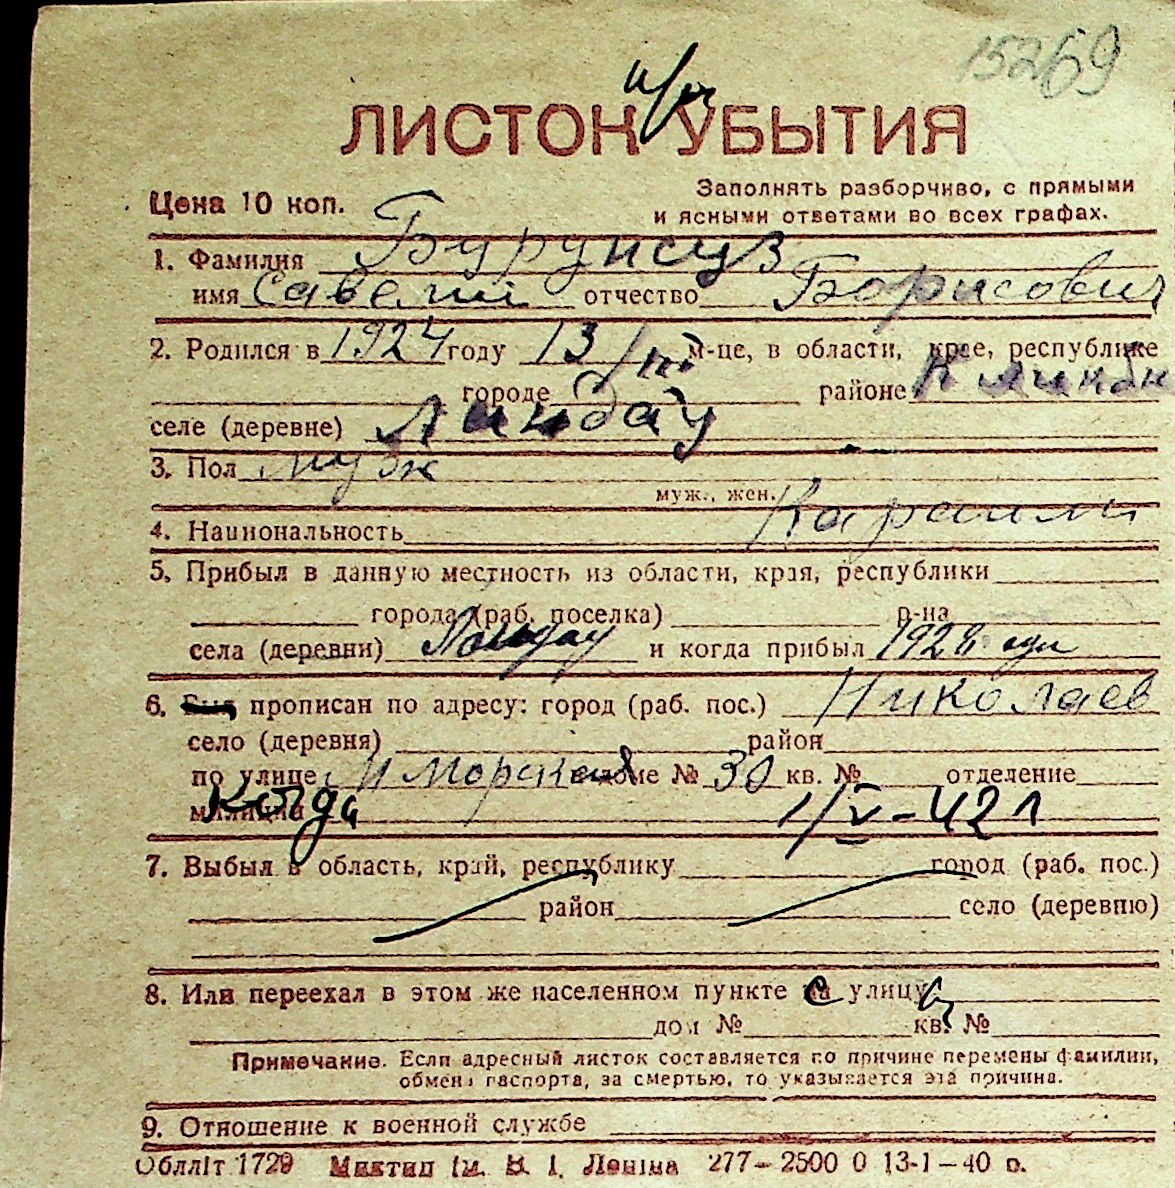 15269
ЛИСТОК УБЫТИЯ
Цена 10 коп.
Заполнять разборчиво, с прямыми
и ясными ответами во всех графах.
1. Фамилия
имя Савелий отчество Борисович
2. Родился в 1924 году 13/III м-це, в области, крае, республике
городе районе
селе (деревне) Линдау
3. Пол муж
муж., жен.
4. Национальность Караим
5. Прибыл в данную местность из области, края, республики
города (раб. поселка) р-на
села (деревни) и когда прибыл
6. прописан по адресу: город (раб. пос.) Николаев
село (деревня) район
по улице доме № 30 кв. № отделение
милиции Когда 1/V-42 г
7. Выбыл в область, край, республику город (раб. пос.)
район село (деревню)
8. Или переехал в этом же населенном пункте улицу
дом № кв. №
Примечание. Если адресный листок составляется по причине перемены фамилии,
обмена паспорта, за смертью, то указывается эта причина.
9. Отношение к военной службе
Облліт 1729 Миктип ім. В. І. Леніна 277–2500 0 13-1–40 р.